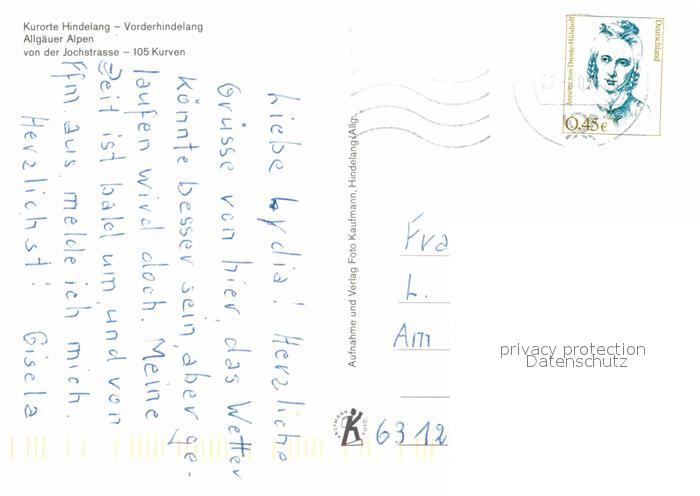 Kurorte Hindelang – Vorderhindelang
Allgäuer Alpen
von der Jochstrasse – 105 Kurven
Liebe Lydia! Herzliche
Grüsse von hier, das Wetter
könnte besser sein, aber ge-
laufen wird doch. Meine
Zeit ist bald um und von
Ffm. aus melde ich mich.
Herzlichst! Gisela
Aufnahme und Verlag Foto Kaufmann, Hindelang/Allg.
Annette von Droste-Hülshoff
Deutschland
0,45€
Fra
L.
Am
6312
KAUFMANN FOTO
privacy protection
Datenschutz